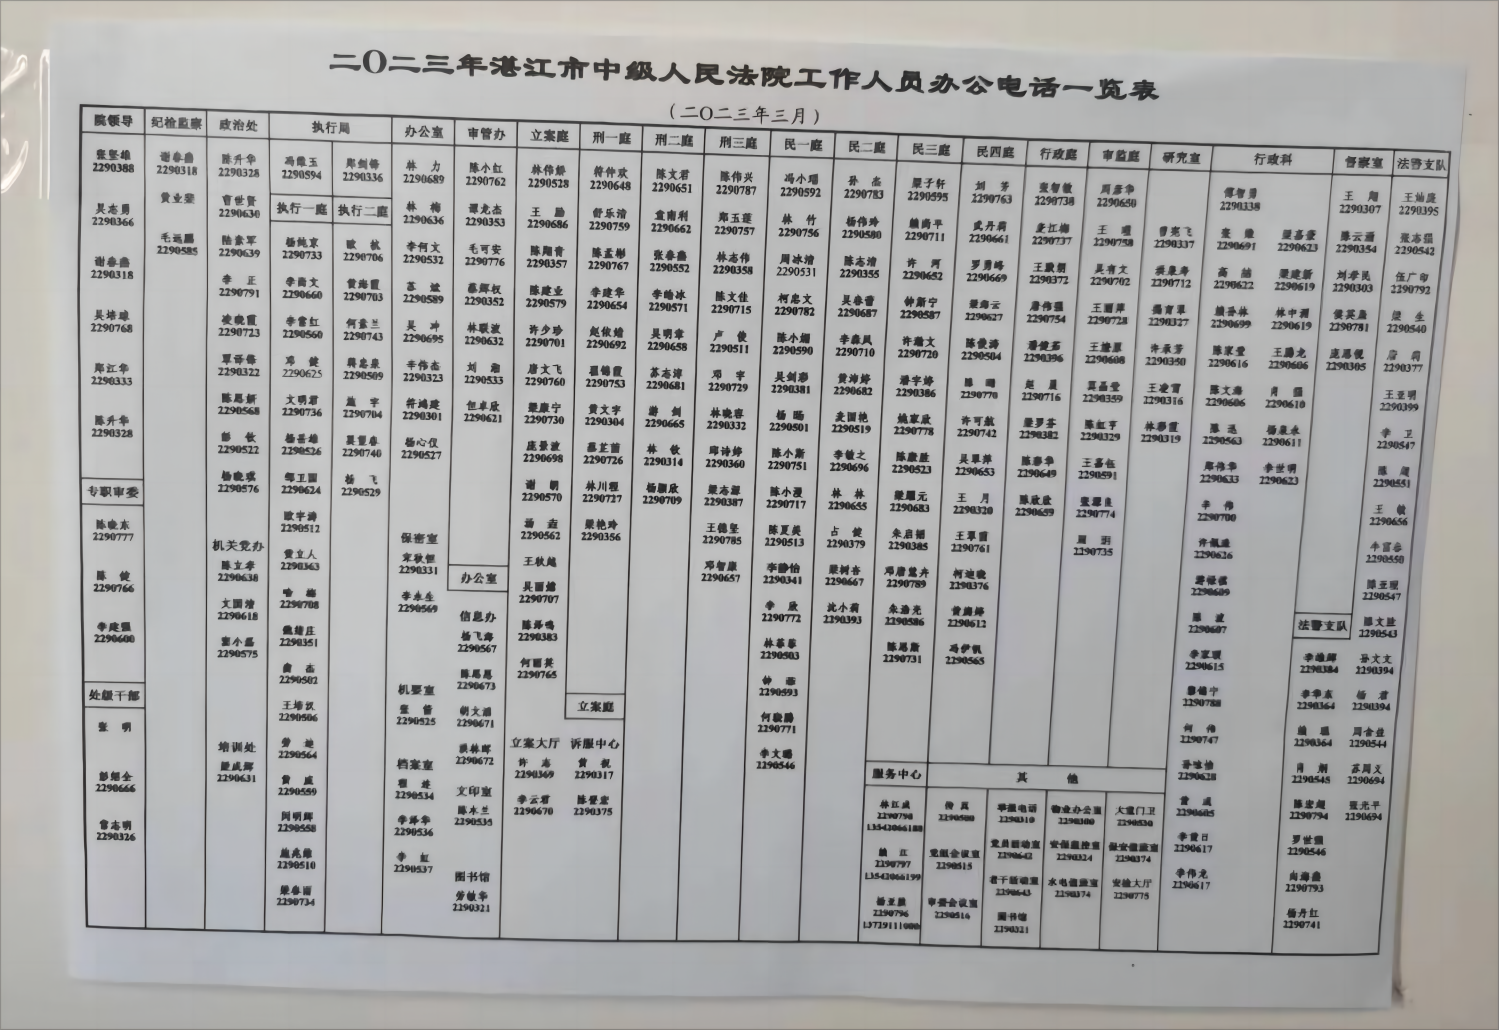 二〇二三年湛江市中级人民法院工作人员办公电话一览表
（二〇二三年三月）
院领导 纪检监察 政治处 执行局 办公室 审管办 立案庭 刑一庭 刑二庭 刑三庭 民一庭 民二庭 民三庭 民四庭 行政庭 审监庭 研究室 行政科 督察室 法警支队
2290388
吴志勇
2290366
谢春燕
2290318
吴培琼
2290768
郑江华
2290333
陈升华
2290328
专职审委
陈晓东
2290777
2290766
李建强
2290600
处级干部
张 明
彭绍全
2290666
常志明
2290326
谢春燕
2290318
黄业斐
毛远鹏
2290585
陈升华
2290328
曹世贤
2290630
陆素军
2290639
李 正
2290791
凌晓霞
2290723
2290322
陈思新
2290568
彭 钦
2290522
杨晓琪
2290576
机关党办
陈立华
2290638
文国清
2290618
2290575
培训处
2290631
冯维玉
2290594
执行一庭
杨纯京
2290733
李尚文
2290660
李雷红
2290560
邓 健
2290625
文明君
2290736
杨岳雄
2290526
邹卫国
2290624
欧宇涛
2290512
黄立人
2290363
喻 梅
2290708
2290351
黄 杰
2290502
王培汉
2290506
劳 建
2290564
黄 威
2290559
2290558
施兆维
2290510
梁春雨
2290734
郑剑锋
2290336
执行二庭
欧 航
2290706
黄海霞
2290703
何素兰
2290743
2290509
施 宇
2290704
2290740
杨 飞
2290529
林 力
2290689
林 梅
2290636
李何文
2290532
苏 斌
2290589
吴 冲
2290695
李伟杰
2290323
符鸿建
2290301
杨心仪
2290527
保密室
宋耿恒
2290331
李永生
2290569
机要室
张 蕾
2290525
档案室
程 连
2290534
李泽华
2290536
李 虹
2290537
陈小红
2290762
谭龙杰
2290353
毛可安
2290776
蔡辉权
2290352
林联波
2290632
刘 湘
2290533
但卓欣
2290621
办公室
信息办
杨飞海
2290567
陈恩恩
2290673
胡文涌
2290671
洪林晖
2290672
文印室
陈木兰
2290535
图书馆
劳敏华
2290321
林伟娇
2290528
王 励
2290686
陈翔青
2290357
陈建业
2290579
许少珍
2290701
唐文飞
2290760
梁康宁
2290730
庞景波
2290698
谢 朝
2290570
汤 垚
2290562
王耿越
吴丽嫦
2290707
陈泽鸣
2290383
何丽英
2290765
立案大厅
许 志
2290369
李云君
2290670
符仲欢
2290648
舒乐清
2290759
陈孟彬
2290767
李建华
2290654
赵依婧
2290692
翟锦霞
2290753
黄文宇
2290304
蔡芷茵
2290726
林川程
2290727
梁艳玲
2290356
立案庭
诉服中心
黄 锐
2290317
陈登宏
2290375
陈文君
2290651
袁南利
2290662
张春燕
2290552
李皓冰
2290571
吴明章
2290658
苏志涛
2290681
游 剑
2290665
林 钦
2290314
杨颖欣
2290709
陈伟兴
2290787
郑玉莲
2290757
林志伟
2290358
陈文佳
2290715
卢 俊
2290511
邓 宇
2290729
林晓容
2290332
邱诗婷
2290360
梁志源
2290387
王德坚
2290785
邓智康
2290657
冯小瑶
2290592
林 竹
2290756
周冰清
2290531
柯忠文
2290782
陈小媚
2290590
吴剑影
2290381
杨 旸
2290501
陈小斯
2290751
陈小漫
2290717
陈夏英
2290513
李静怡
2290341
李 欣
2290772
林慕慕
2290503
2290593
何骏腾
2290771
李文璐
2290546
孙 杰
2290783
杨伟玲
2290580
陈志清
2290355
吴春蕾
2290687
李森风
2290710
黄海婷
2290682
麦国艳
2290519
李敏之
2290696
林 林
2290655
占 健
2290379
梁树杏
2290667
沈小莉
2290393
梁子轩
2290595
赖尚平
2290711
许 河
2290652
钟斯宁
2290587
许瀚文
2290720
潘宇婷
2290386
姚家欣
2290778
陈康胜
2290523
2290683
朱启韬
2290385
2290789
朱浩光
2290586
陈思斯
2290731
服务中心
林江成
2290798
13542066188
赖 江
2290797
13542066199
杨亚胜
2290796
13729111000
刘 芳
2290763
武丹莉
2290661
罗勇峰
2290669
梁海云
2290627
陈俊涛
2290504
陈 曦
2290770
许可航
2290742
吴翠萍
2290653
王 月
2290320
2290761
柯迪晓
2290376
2290612
冯伊帆
2290565
其 他
传真
2290500
党组会议室
2290515
审委会议室
2290516
举报电话
2290310
党员活动室
2290642
老干活动室
2290643
图书馆
2290321
物业办公室
2290300
安保监控室
2290324
水电值班室
2290374
大堂门卫
2290530
保安值班室
2290374
安检大厅
2290775
张智敏
2290738
麦江梅
2290737
王跋朝
2290372
唐伟强
2290754
潘健茹
2290396
赵 晨
2290716
梁罗芬
2290382
陈黎华
2290649
陈欣欣
2290659
周彦华
2290650
王 曜
2290758
吴有文
2290702
王丽萍
2290728
2290608
莫晶莹
2290359
陈虹亨
2290329
王嘉钰
2290591
2290774
周 玥
2290735
曹宪飞
2290337
2290712
2290327
许承芳
2290350
王凌雷
2290316
林彩霞
2290319
傅智勇
2290338
2290691
高 洁
2290622
2290699
陈家莹
2290616
陈文海
2290606
陈 迅
2290563
郑伟华
2290633
李 伟
2290700
许佩珠
2290626
2290609
陈 波
2290607
李家琨
2290615
2290788
何 伟
2290747
孙咏怡
2290628
黄 成
2290605
李黄日
2290617
李伟龙
2290617
梁嘉豪
2290623
梁建新
2290619
林中湖
2290619
王腾龙
2290606
肖 强
2290610
杨泉永
2290611
李世明
2290623
王 翔
2290307
陈云通
2290354
刘孝民
2290303
侯英盈
2290781
庞恩假
2290305
法警支队
李雄辉
2290384
李华东
2290364
2290364
肖 炯
2290545
陈宏超
2290794
罗世强
2290546
向海燕
2290793
杨丹红
2290741
王灿庭
2290395
张志强
2290542
伍广旬
2290792
梁 生
2290540
唐 莉
2290377
王亚明
2290399
李 卫
2290547
陈 超
2290551
王 敏
2290656
李富春
2290550
2290547
2290543
孙文文
2290394
杨 君
2290394
周金益
2290544
苏周义
2290694
张光平
2290694